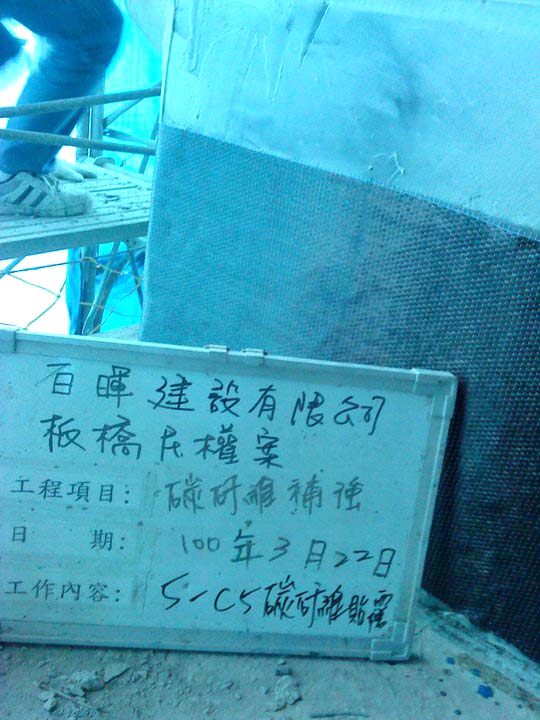 百暉建設有限公司
板橋民權案
工程項目: 碳纤維補強
日 期: 100年3月22日
工作內容: S-C5碳纤維貼覆